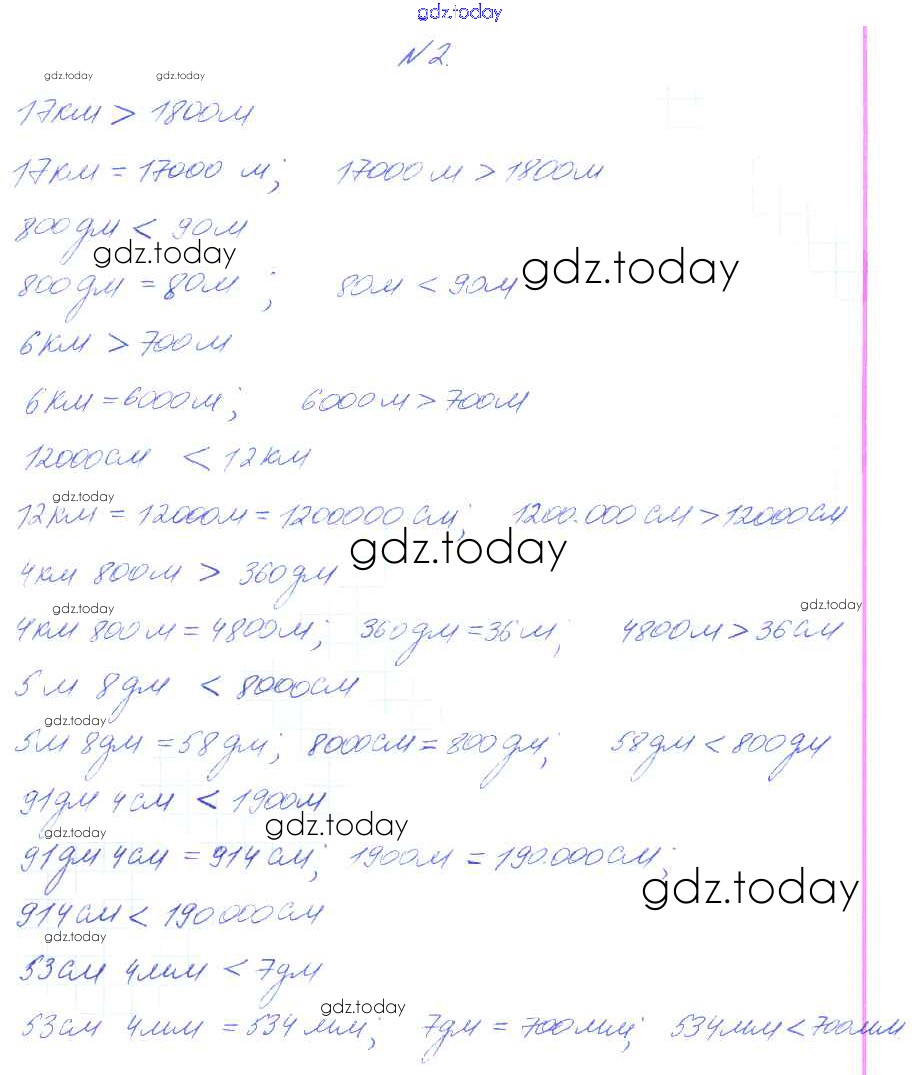 gdz.today
N 2.
gdz.today gdz.today
17км > 1800м
17км = 17000 м; 17000м > 1800м
800дм < 90м
gdz.today
gdz.today
800дм = 80м ; 80м < 90м
6км > 700м
6км = 6000м; 6000м > 700м
12000см < 12км
gdz.today
12км = 12000м = 1200000см; 1200.000см > 12000см
gdz.today
4км 800м > 360дм
gdz.today gdz.today
4км 800м = 4800м; 360дм = 36м; 4800м > 36см
5м 8дм < 8000см
gdz.today
5м 8дм = 58дм; 8000см = 800дм; 58дм < 800дм
91дм 4см < 1900м
gdz.today
gdz.today
91дм 4см = 914см; 1900м = 190.000см;
gdz.today
914см < 190000см
gdz.today
53см 4мм < 7дм
gdz.today
53см 4мм = 534мм; 7дм = 700мм; 534мм < 700мм